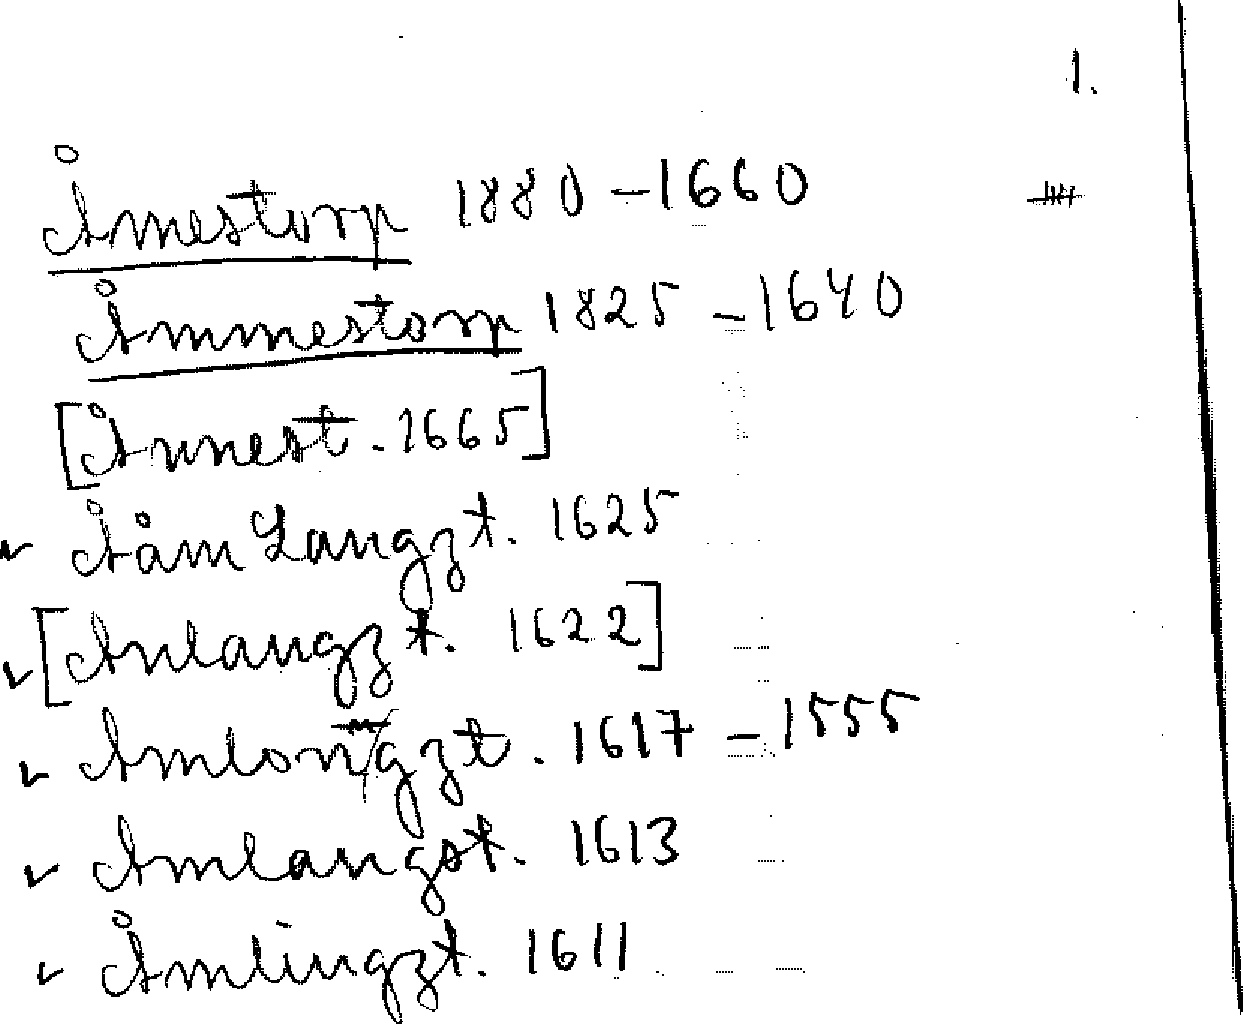 1.
Åmestorp 1880 - 1660
Åmmestorp 1825 - 1640
[Åmnest. 1665]
Ååm Langzt. 1625
[Amlangzt. 1622]
Amlongzt. 1617 - 1555
Amlangst. 1613
Åmlingzt. 1611